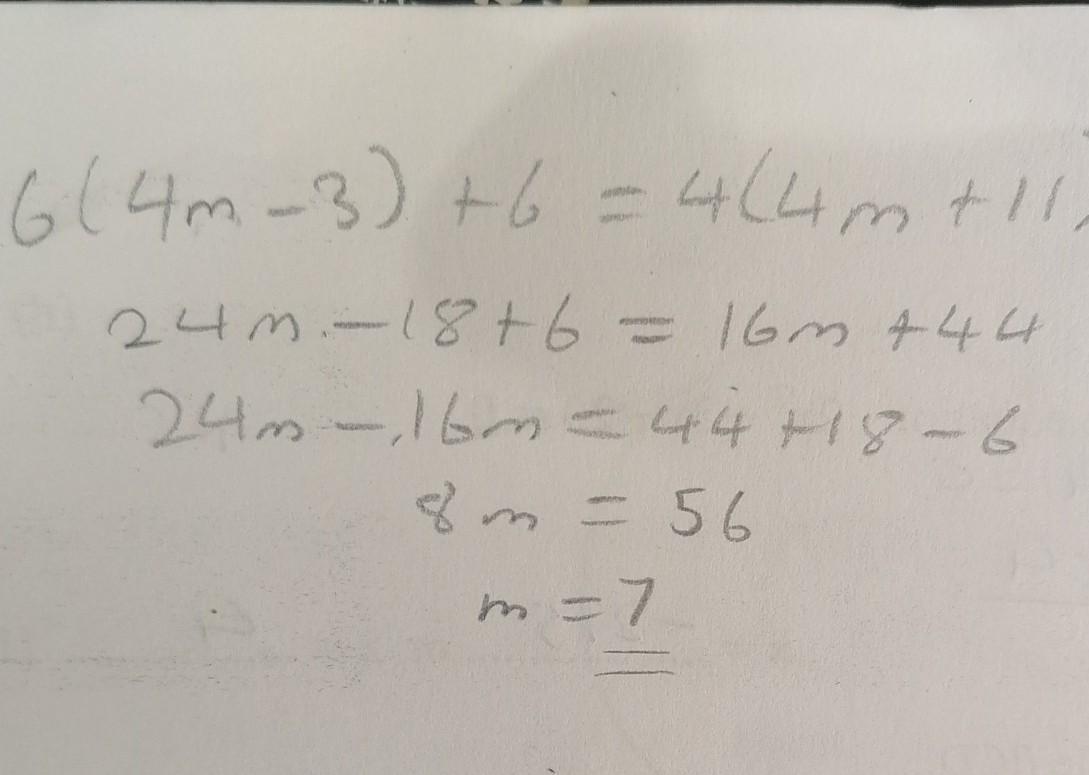 6(4m-3)+6 = 4(4m+11)
24m-18+6 = 16m+44
24m-16m = 44+18-6
8m = 56
m = 7